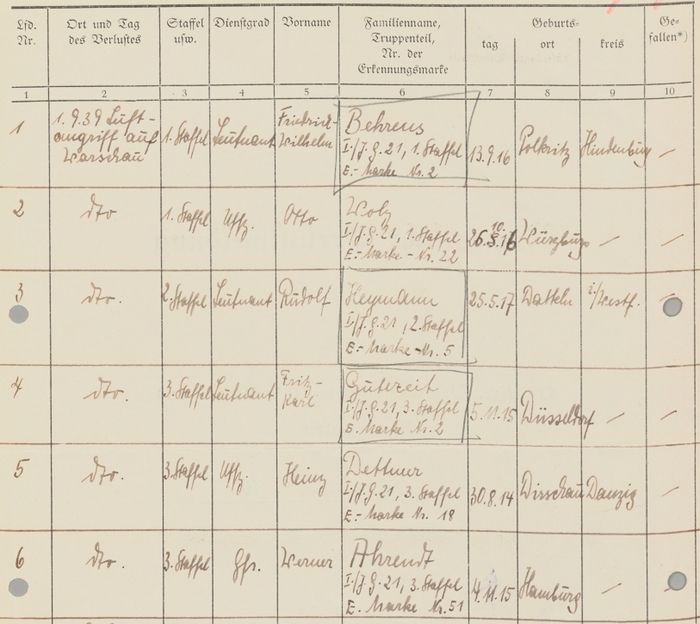 Lfd. Nr.
Ort und Tag des Verlustes
Staffel usw.
Dienstgrad
Vorname
Familienname, Truppenteil, Nr. der Erkennungsmarke
Geburts-
tag
ort
kreis
Ge-fallen*)
1 2 3 4 5 6 7 8 9 10
1
1.9.39 Luft-
angriff auf
Warschau
1. Staffel
Leutnant
Friedrich-
Wilhelm
Behrens
I./J.G. 21, 1. Staffel
E.- Marke Nr. 2
13.9.16
Polkritz
Hindenburg
—
2
dto
1. Staffel
Uffz.
Otto
I./J.G. 21, 1. Staffel
E.- Marke - Nr. 22
Würzburg
—
—
3
dto.
2. Staffel
Leutnant
Rudolf
Heymann
I./J.G. 21, 2. Staffel
E.- Marke - Nr. 5
25.5.17
Datteln
i./Westf.
4
dto.
3. Staffel
Leutnant
Fritz-
Karl
Gutezeit
I./J.G. 21, 3. Staffel
E. Marke Nr. 2
5.11.15
Düsseldorf
—
—
5
dto.
3. Staffel
Uffz.
Heinz
Dettmer
I./J.G. 21, 3. Staffel
E.- Marke Nr. 18
30.8.14
Dirschau
Danzig
—
6
dto.
3. Staffel
Gfr.
Werner
Ahrendt
I./J.G. 21, 3. Staffel
E. Marke Nr. 51
4.11.15
Hamburg
—